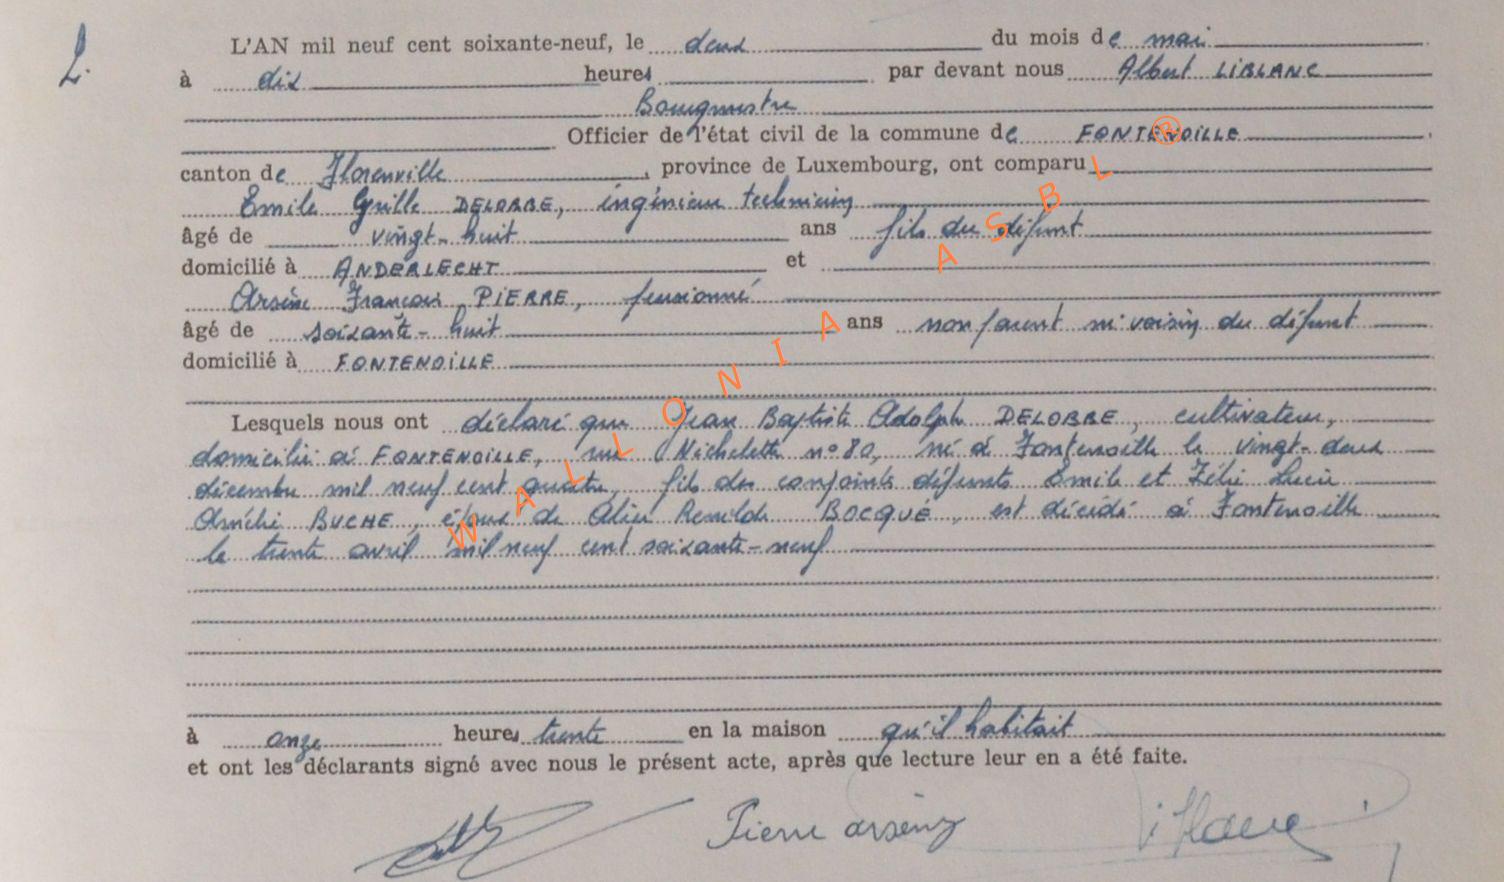 2.
L'AN mil neuf cent soixante-neuf, le deux du mois de mai
à dix heures par devant nous Albert LIBLANC
Bourgmestre
Officier de l'état civil de la commune de FONTENOILLE
canton de Florenville, province de Luxembourg, ont comparu
Emile DELOBBE, ingénieur technicien
âgé de vingt-huit ans fils du défunt
domicilié à ANDERLECHT et
Arsène François PIERRE, pensionné
âgé de soixante-huit ans non parent ni voisin du défunt
domicilié à FONTENOILLE
Lesquels nous ont déclaré que Jean Baptiste Adolph DELOBBE, cultivateur,
domicilié à FONTENOILLE, rue n° 80, né à Fontenoille le vingt-deux
décembre mil neuf cent quatre, fils des conjoints défunts Emile et Zélie Lucie
Amélie BUCHE, époux de Alice Renilde BOCQUE, est décédé à Fontenoille
le trente avril mil neuf cent soixante-neuf
à onze heures trente en la maison qu'il habitait
et ont les déclarants signé avec nous le présent acte, après que lecture leur en a été faite.
Pierre Arsène
WALLONIA ASBL ®